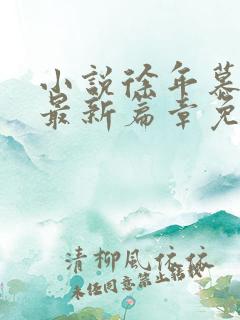 小说徐年慕
最新篇章免
清柳风依依
未经同意禁止转载